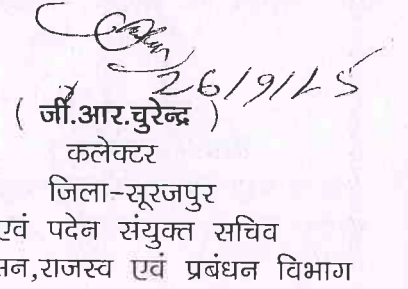 26/9/15
( जी.आर.चुरेन्द्र )
कलेक्टर
जिला-सूरजपुर
एवं पदेन संयुक्त सचिव
सन,राजस्व एवं प्रबंधन विभाग